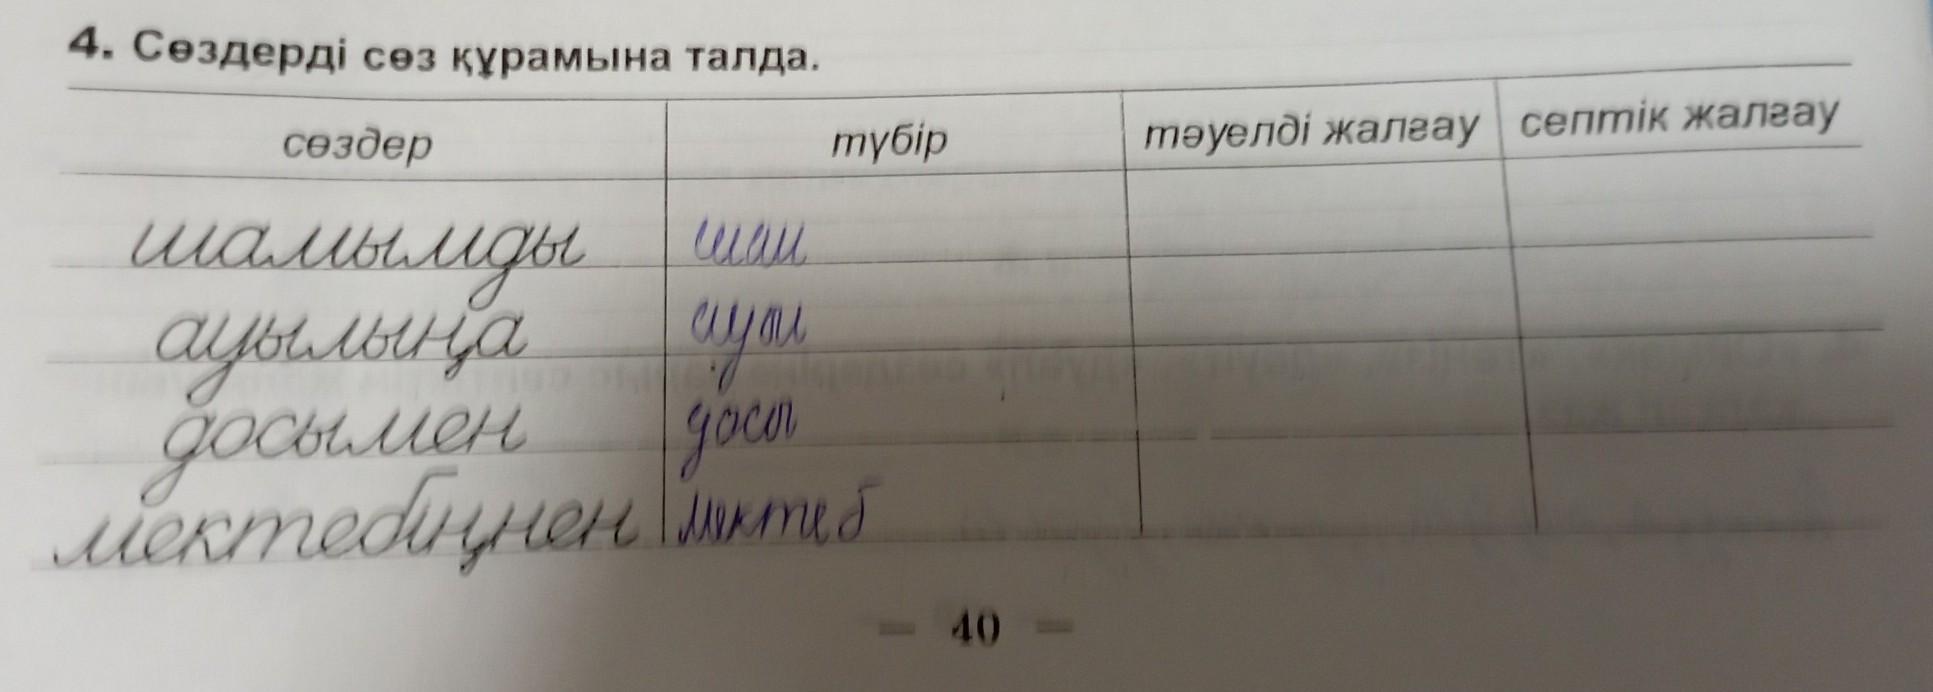 4. Сөздерді сөз құрамына талда.
сөздер түбір тәуелді жалғау септік жалғау
шамымды шам
ауылыңа ауыл
досымен досы
мектебіңнен мектеб
— 40 —